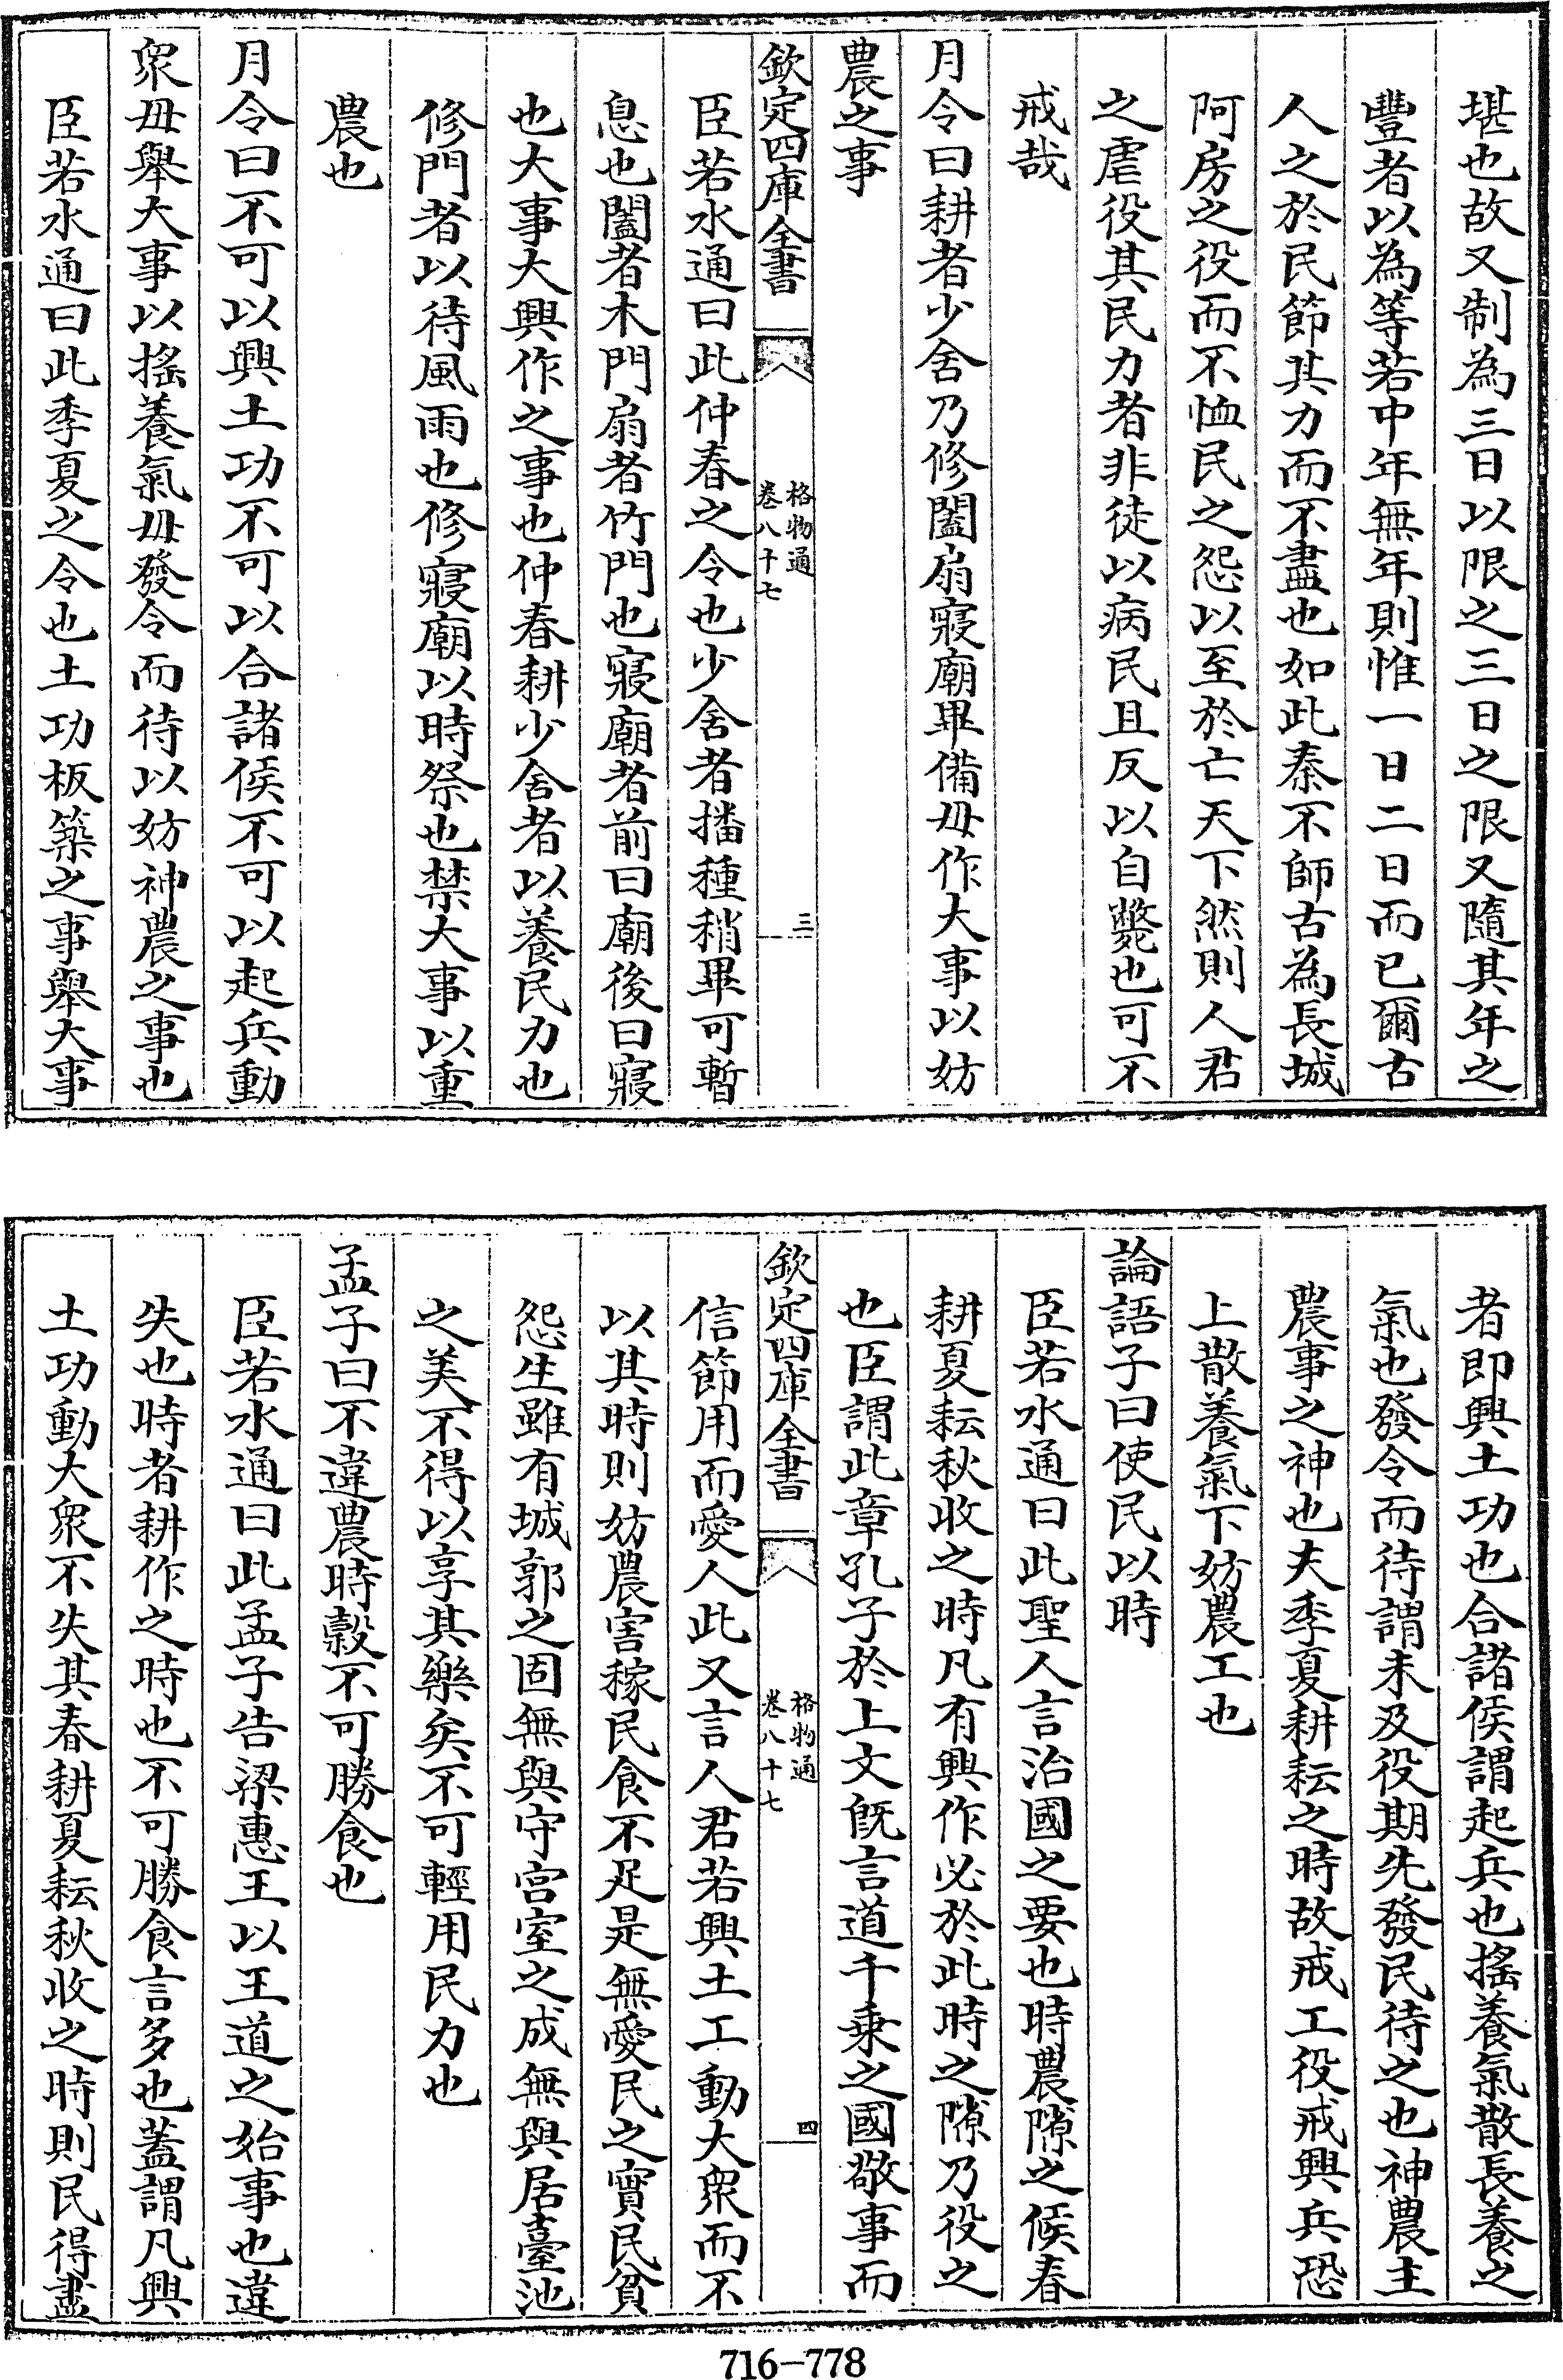 堪也故又制為三日以限之三日之限又隨其年之
豐者以為等若中年無年則惟一日二日而已爾古
人之於民節其力而不盡也如此秦不師古為長城
阿房之役而不恤民之怨以至於亡天下然則人君
之虐役其民力者非徒以病民且反以自斃也可不
戒哉
月令曰耕者少舍乃修闔扇寢廟畢備毋作大事以妨
農之事
欽定四庫全書
格物通
卷八十七
三
臣若水通曰此仲春之令也少舍者播種稍畢可暫
息也闔者木門扇者竹門也寢廟者前曰廟後曰寢
也大事大興作之事也仲春耕少舍者以養民力也
修門者以待風雨也修寢廟以時祭也禁大事以重
農也
月令曰不可以興土功不可以合諸侯不可以起兵動
衆毋舉大事以搖養氣毋發令而待以妨神農之事也
臣若水通曰此季夏之令也土功板築之事舉大事
者即興土功也合諸侯謂起兵也搖養氣散長養之
氣也發令而待謂未及役期先發民待之也神農主
農事之神也夫季夏耕耘之時故戒工役戒興兵恐
上散養氣下妨農工也
論語子曰使民以時
臣若水通曰此聖人言治國之要也時農隙之候春
耕夏耘秋收之時凡有興作必於此時之隙乃役之
也臣謂此章孔子於上文旣言道千乗之國敬事而
欽定四庫全書
格物通
卷八十七
四
信節用而愛人此又言人君若興土工動大衆而不
以其時則妨農害稼民食不足是無愛民之實民貧
怨生雖有城郭之固無與守宫室之成無與居臺池
之美不得以享其樂矣不可輕用民力也
孟子曰不違農時穀不可勝食也
臣若水通曰此孟子告梁惠王以王道之始事也違
失也時者耕作之時也不可勝食言多也蓋謂凡興
土功動大衆不失其春耕夏耘秋收之時則民得盡
716-778